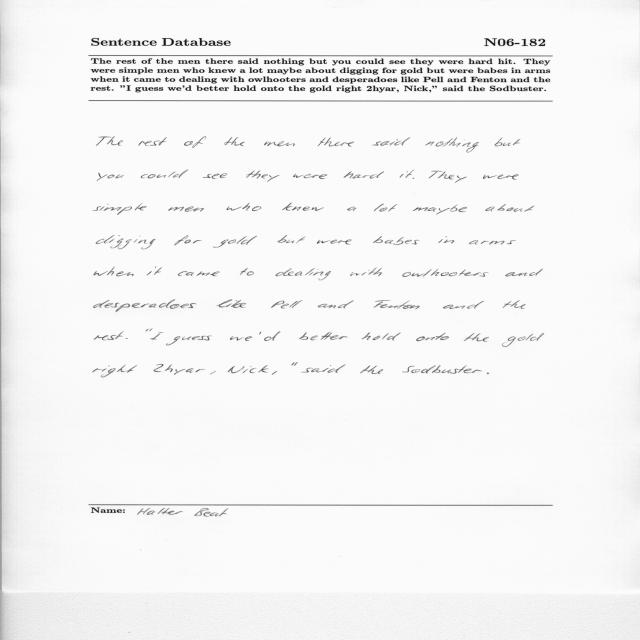 Sentence Database N06-182
The rest of the men there said nothing but you could see they were hard hit. They
were simple men who knew a lot maybe about digging for gold but were babes in arms
when it came to dealing with owlhooters and desperadoes like Pell and Fenton and the
rest. "I guess we'd better hold onto the gold right 2hyar, Nick," said the Sodbuster.
The rest of the men there said nothing but
you could see they were hard it. They were
simple men who knew a lot maybe about
digging for gold but were babes in arms
when it came to dealing with owlhooters and
desperadoes like Pell and Fenton and the
rest. "I guess we'd better hold onto the gold
right 2hyar, Nick," said the Sodbuster.
Name: Halter Beat